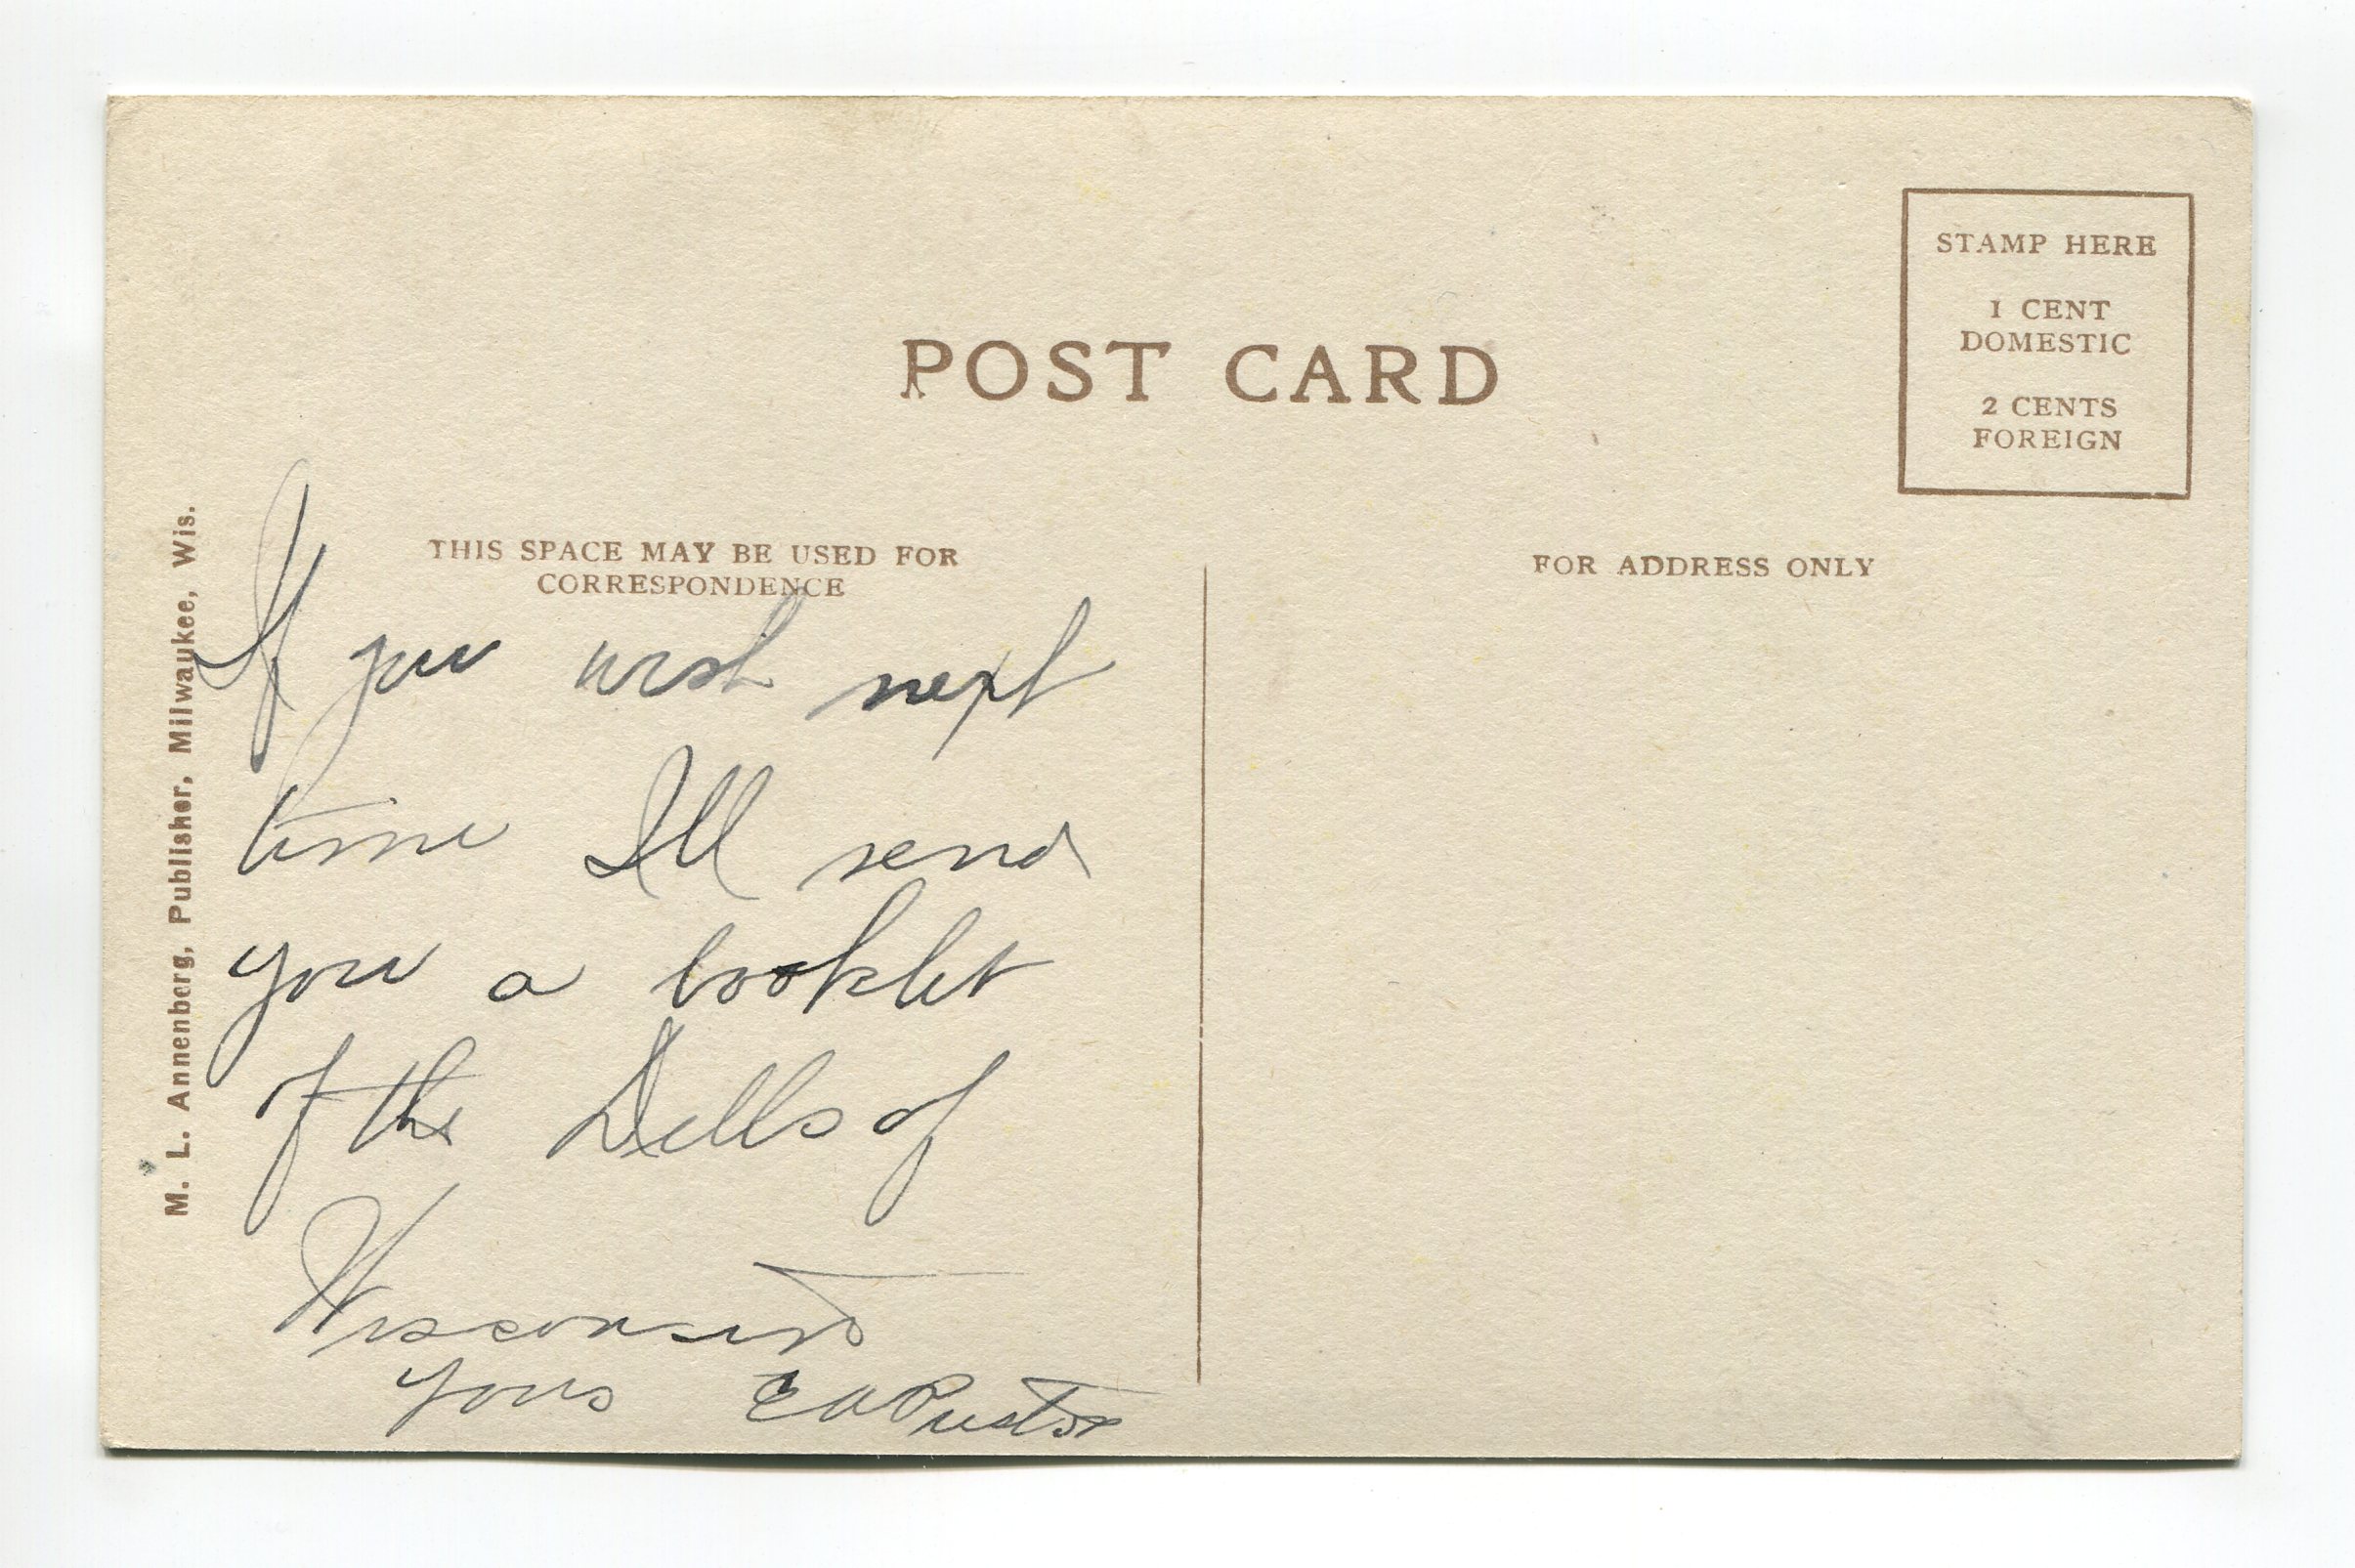 POST CARD
STAMP HERE
1 CENT
DOMESTIC
2 CENTS
FOREIGN
THIS SPACE MAY BE USED FOR
CORRESPONDENCE
FOR ADDRESS ONLY
M. L. Annenberg, Publisher, Milwaukee, Wis.
If you wish next
time Ill send
you a booklet
of the Dells of
Wisconsin
Yours